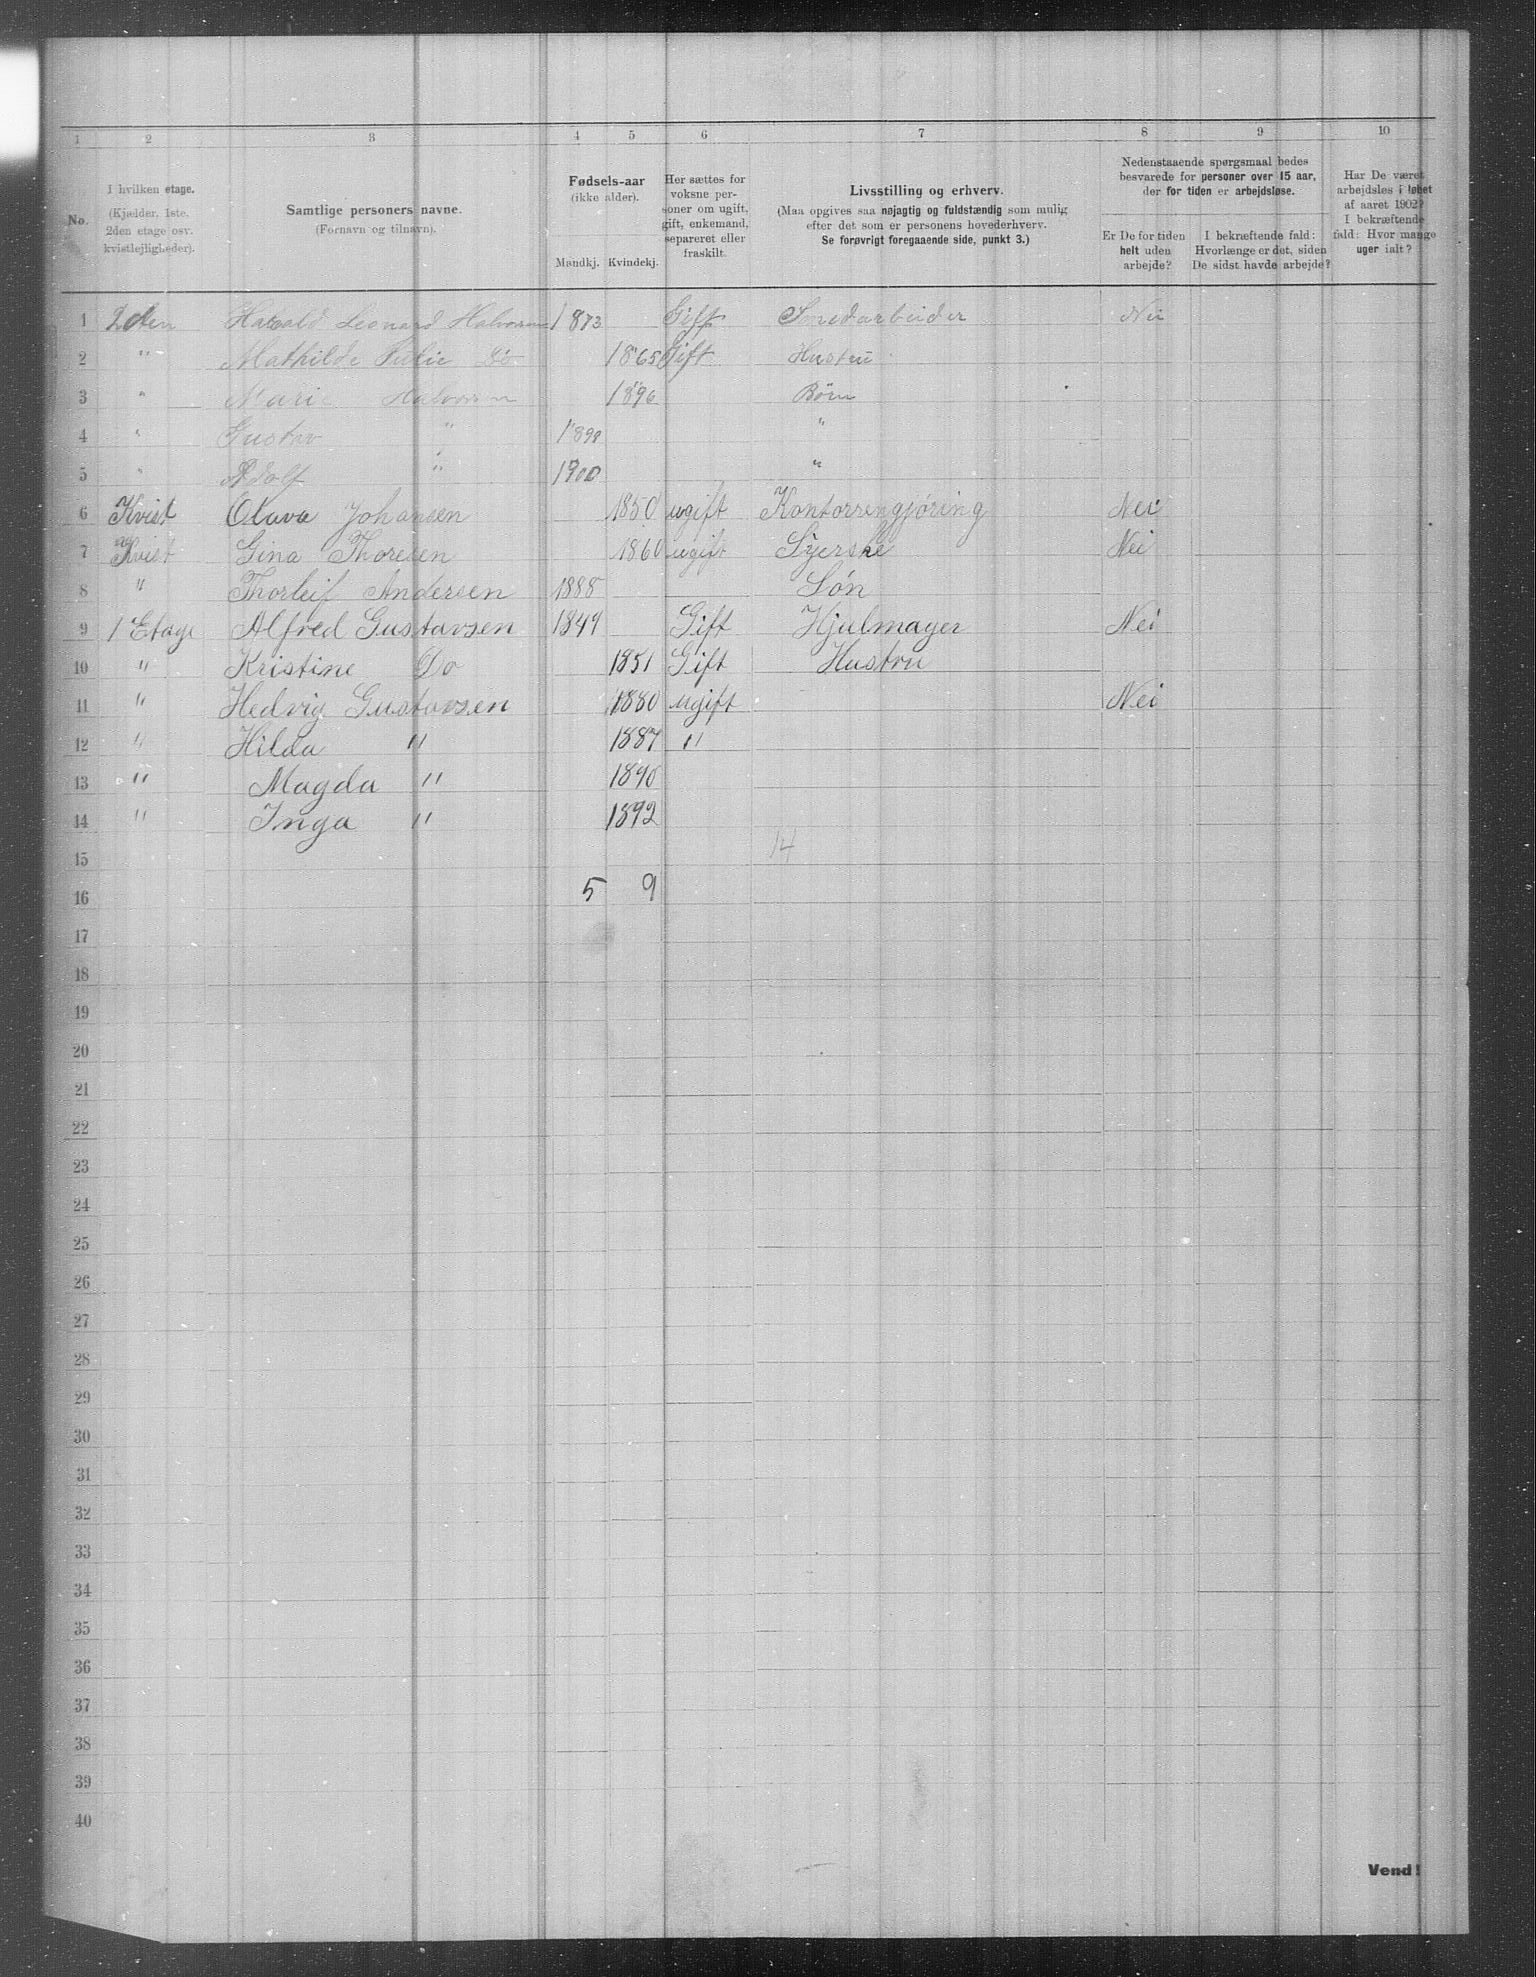 1 2 3 4 5 6 7 8 9 10
No.
I hvilken etage.
(Kjælder, 1ste,
2den etage osv.
kvistlejligheder).
Samtlige personers navne.
(Fornavn og tilnavn).
Fødsels-aar
(ikke alder).
Mandkj. Kvindekj.
Her sættes for
voksne per-
soner om ugift,
gift, enkemand,
separeret eller
fraskilt.
Livsstilling og erhverv.
(Maa opgives saa nøjagtig og fuldstændig som mulig
efter det som er personens hovederhverv.
Se forøvrigt foregaaende side, punkt 3.)
Nedenstaaende spørgsmaal bedes
besvarede for personer over 15 aar,
der for tiden er arbejdsløse.
Er De for tiden
helt uden
arbejde?
I bekræftende fald:
Hvorlænge er det, siden
De sidst havde arbejde?
Har De været
arbejdsløs i løbet
af aaret 1902?
I bekræftende
fald: Hvor mange
uger ialt?
1 2den Leonard Halvorsen 1873 Gift Smedarbeider Nei
2 " Mathilde Julie Do 1865 Gift Hustru
3 " Marie Halvorsen 1896 Børn
4 " Gustav " 1898 "
5 " Adolf " 1900 "
6 Kvist Olava Johansen 1850 ugift Kontorrengjøring Nei
7 Kvist Gina Thoresen 1860 ugift Syerske Nei
8 " Thorleif Andersen 1888 Søn
9 1 Etage Alfred Gustavsen 1849 Gift Hjulmager Nei
10 " Kristine Do 1851 Gift Hustru
11 " Hedvig Gustavsen 1880 ugift Nei
12 " Hilda " 1887 "
13 " Magda " 1890
14 " Inga " 1892
15 14
16 5 9
17
18
19
20
21
22
23
24
25
26
27
28
29
30
31
32
33
34
35
36
37
38
39
40
Vend!